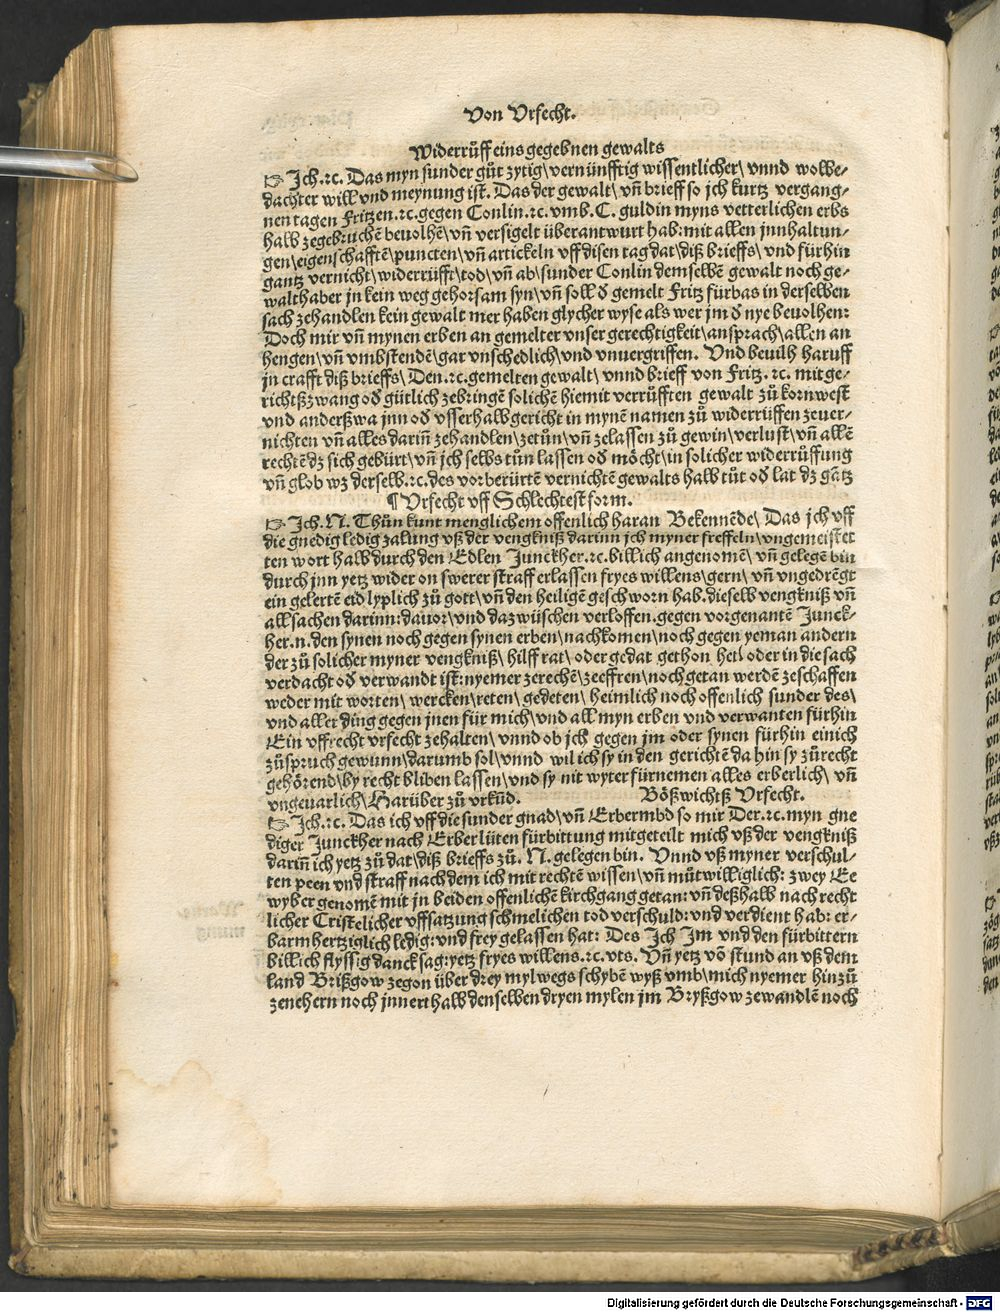 Von Vrfecht.
Widerrüff eins gegebnen gewalts
☞ Jch.ꝛc. Das myn sunder gůt zytig\ vernünfftig wissentlicher\ vnnd wolbe⸗
dachter will vnd meynung ist. Das der gewalt\ vñ brieff so jch kurtz vergang⸗
nen tagen Fritzen.ꝛc.gegen Conlin.ꝛc.vmb.C. guldin myns vetterlichen erbs
halb zegebruchē beuolhē\ vñ versigelt überantwurt hab: mit allen jnnhaltun⸗
gen\ eigenschafftē\ puncten\ vñ artickeln vff disen tag dat\ diß brieffs\ vnd fürhin
gantz vernicht\ widerrüfft\ tod\ vñ ab\ sunder Conlin dem selbē gewalt noch ge⸗
walthaber jn kein weg gehorsam syn\ vñ soll ď gemelt Fritz fürbas in derselben
sach zehandlen kein gewalt mer haben glycher wyse als wer jm ď nye beuolhen:
Doch mir vñ mynen erben an gemelter vnser gerechtigkeit\ ansprach\ allen an
hengen\ vñ vmbstendē\ gar vnschedlich\ vnd vnuergriffen. Vnd beuilh haruff
jn crafft diß brieffs\ Den.ꝛc.gemelten gewalt\ vnnd brieff von Fritz.ꝛc. mit ge⸗
richtßzwang oď gütlich zebringē solichē hiemit verrüfften gewalt zů kornwest
vnd anderßwa jnn oď vsserhalb gericht in mynē namen zů widerrüffen zeuer⸗
nichten vñ alles dariñ zehandlen\ zetůn\ vñ zelassen zů gewin\ verlust\ vñ allē
rechtē dz sich gebürt\ vñ jch selbs tůn lassen oď möcht\ in solicher widerrüffung
vñ glob wz derselb.ꝛc.des vorberürtē vernichtē gewalts halb tůt oď lat dz gātz
¶ Vrfecht vff Schlechtest form.
☞ Jch.N. Thůn kunt menglichem offenlich haran Bekennēde\ Das jch vff
die gnedig ledig zalung vß der vengkniß darinn jch myner freffeln\ vngemeister
ten wort halb durch den Edlen Junckher.ꝛc.billich angenomē\ vñ gelegē bin
durch jnn yetz wider on swerer straff erlassen fryes willens\ gern\ vñ vngedrēgt
ein gelertē eid lyplich zů gott\ vñ den heiligē geschworn hab.dieselb vengkniß vñ
all sachen darinn: dauor\ vnd dazwüschen verloffen.gegen vorgenantē Junck⸗
her.n.den synen noch gegen synen erben\ nachkomen\ noch gegen yeman andern
der zů solicher myner vengkniß\ hilff rat\ oder gedat gethon het\ oder in die sach
verdacht oď verwandt ist: nyemer zerechē\ zeeffren\ noch getan werdē zeschaffen
weder mit worten\ wercken\ reten\ gedeten\ heimlich noch offenlich sunder des\
vnd aller ding gegen jnen für mich\ vnd all myn erben vnd verwanten fürhin
Ein vffrecht vrfecht zehalten\ vnnd ob jch gegen jm oder synen fürhin einich
zůspruch gewunn\ darumb sol\ vnnd wil ich sy in den gerichtē da hin sy zůrecht
gehörend\ by recht bliben lassen\ vnd sy nit wyter fürnemen alles erberlich\ vñ
vngeuarlich\ Harüber zů vrkūd. Bößwichtß Vrfecht.
☞ Jch.ꝛc. Das ich vff die sunder gnad\ vñ Erbermbd so mir Der.ꝛc.myn gne
diger Junckher nach Erber lüten fürbittung mitgeteilt mich vß der vengkniß
dariñ ich yetz zů dat\ diß brieffs zů. N.gelegen bin. Vnnd vß myner verschul⸗
ten peen vnd straff nach dem ich mit rechtē wissen\ vñ můtwilliglich: zwey Ee
wyber genomē mit jn beiden offenlichē kirchgang getan: vñ deßhalb nach recht
licher Cristelicher vffsatzung schmelichen tod verschuld: vnd verdient hab: er⸗
barmhertziglich ledig: vnd frey gelassen hat: Des Jch Jm vnd den fürbittern
billich flyssig danck sag: yetz fryes willens.ꝛc.vts. Vñ yetz vō stund an vß dem
land Brißgow zegon über drey myl wegs schybē wyß vmb\ mich nyemer hinzů
zenehern noch jnnerthalb denselben dryen mylen jm Bryßgow zewandlē noch
Digitalisierung gefördert durch die Deutsche Forschungsgemeinschaft - DFG